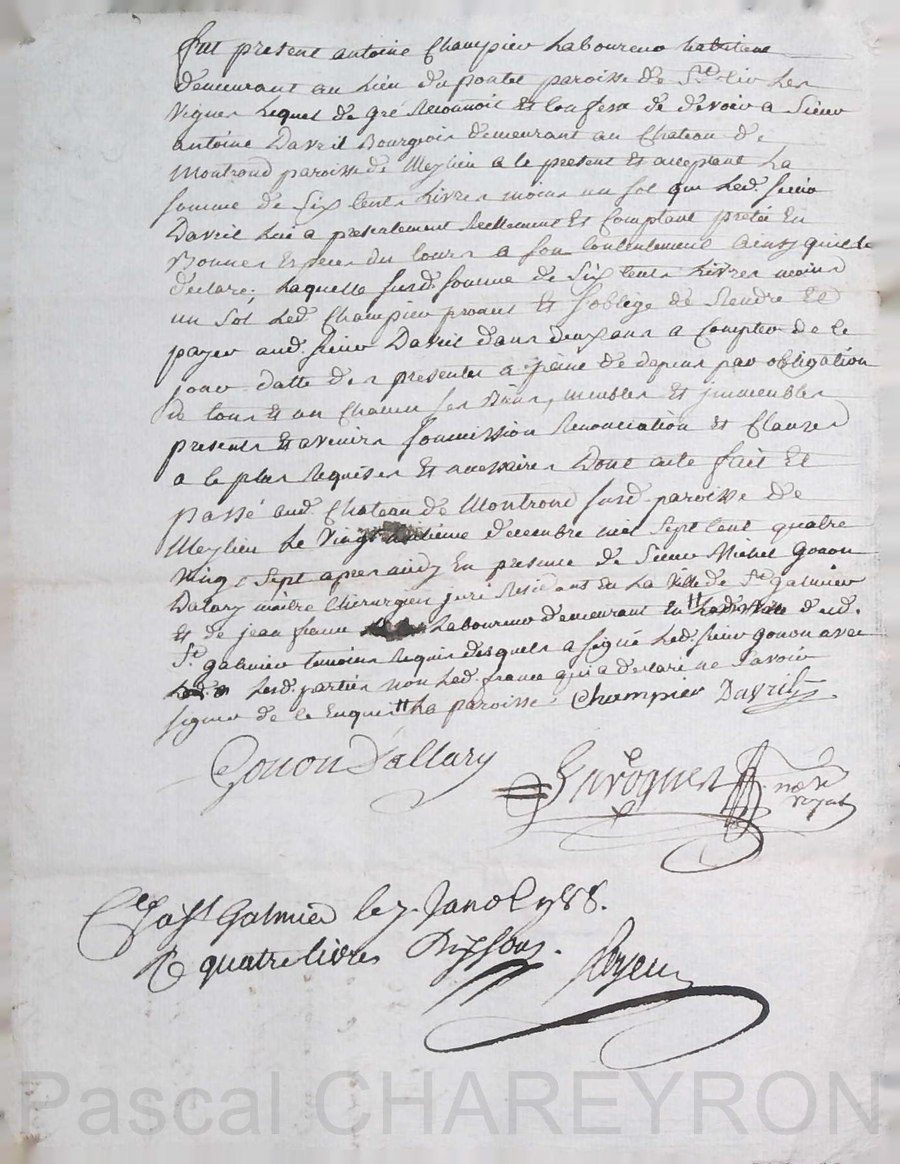 fut present antoine Champier Laboureur habitant
demeurant au Lieu du pontet paroisse de St Cir Les
Vignes Lequel de gré Reconnoit et Confesse de devoir a Sieur
antoine Davril Bourgeois demeurant au Chateau de
Montrond paroisse de Meylieu a le present et acceptant La
somme de Six Cents Livres moins un sol que Led. Sieur
Davril Lui a presentement Reellement et Comptant pretée En
Bonnes Especes du Cours a son Contentement ainsy quil Le
declare; Laquelle susd. somme de Six Cents Livres moins
un Sol Led. Champier promet et s'oblige de Rendre et
payer aud. Sieur Davril dans deux ans a Compter de Ce
jour datte des presentes a peine de depens par obligation
de tous et un Chacun ses Biens, meubles et jmmeubles
presents et avenirs soumission Renonciation et Clauses
a le plus Requises et necessaires Dont acte fait et
passé aud. Chateau de Montrond susd. paroisse de
Meylieu Le Vingt decembre mil Sept Cent quatre
Vingt Sept apres midy En presence de Sieur Michel Gonon
Dalary maitre Chirurgien juré Residant En La Ville de St Galmier
et de jean france Laboureur demeurant En d'ud.
St galmier temoins Requis desquels a signé Led. Sieur Gonon avec
Lesd. parties non Led. france qui a declaré ne Savoir
signer de Ce Enquis # La paroisse. Champier Davril
Gonon D'allary
no.re
royal
C.le a St Galmier le 7. Janv. 1788.
R quatre livres Dix sous.